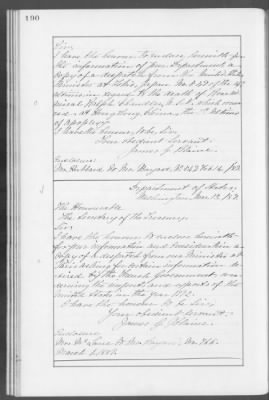 190
Sir:
I have the honor to enclose herewith for
the information of your Department a
copy of a despatch from the United States
Minister at Tokio, Japan No.
relative to the death of Rear Ad-
miral Ralph Chandler, U.S.N. which occur-
red at Hong Kong, China, the
of apoplexy.
I have the honor, to be, Sir,
Your obedient servant,
James G. Blaine.
Enclosure:
Mr. Hubbard to Mr. Bayard, No.
Department of State,
Washington, Mar.
The Honorable
The Secretary of the Treasury.
Sir:
I have the honor to enclose herewith
for your information and consideration a
copy of a despatch from our Minister at
Paris asking for certain information de-
sired by the French Government con-
cerning the imports and exports of the
United States in the year
I have the honor to be, Sir,
Your obedient servant,
James G. Blaine.
Enclosure:
Mr. McLane to Mr. Bayard, No.
March